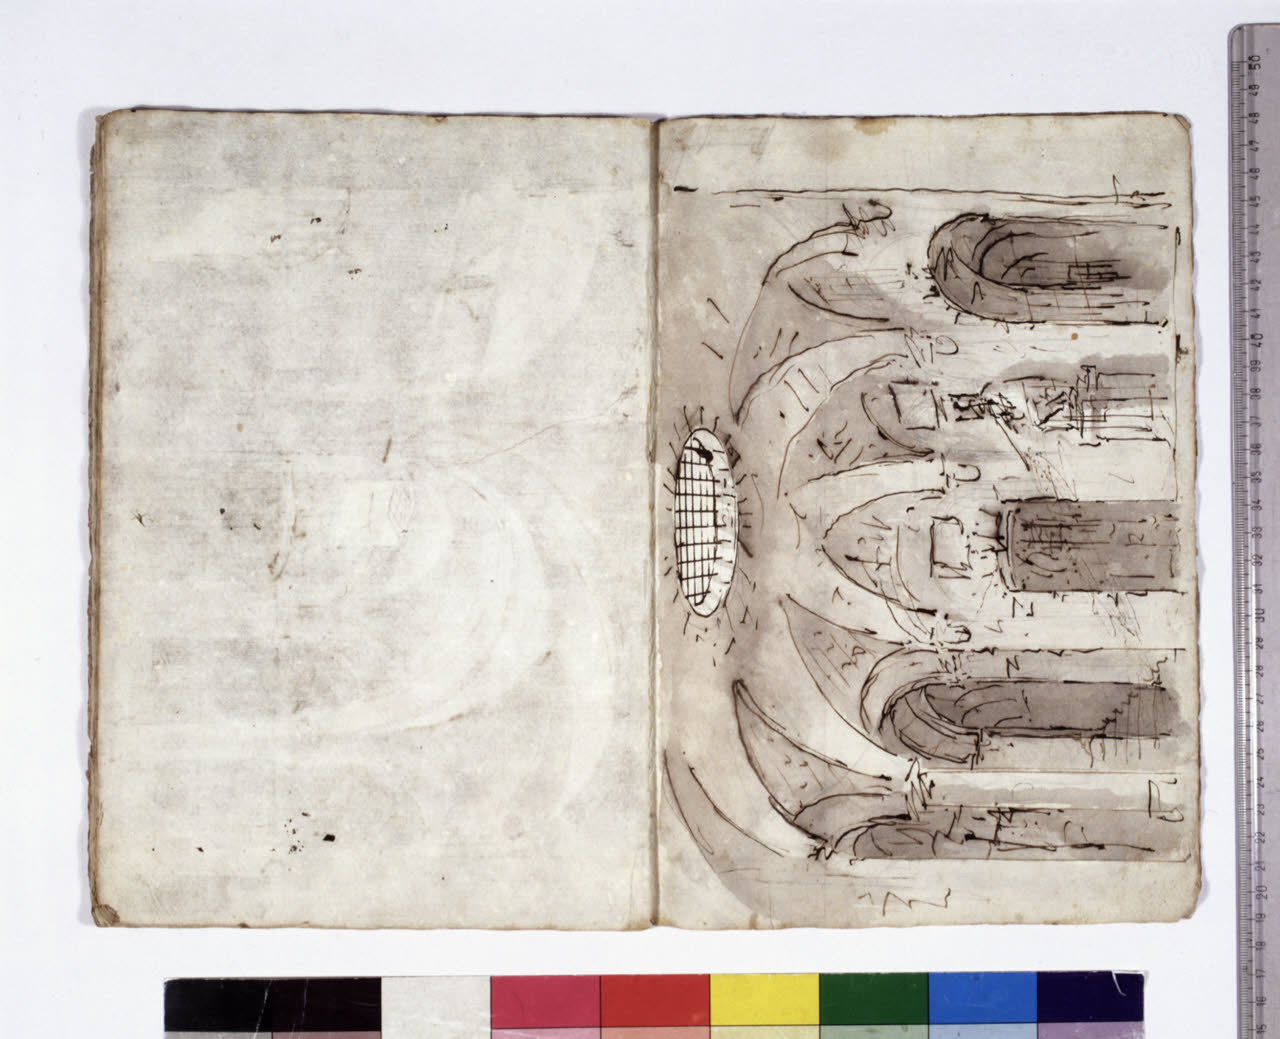 50
49
48
47
46
45
44
43
42
41
40
39
38
37
36
35
34
33
32
31
30
29
28
27
26
25
24
23
22
21
20
19
18
17
16
15